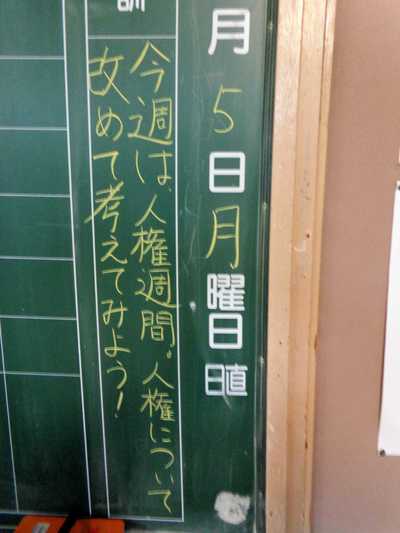 月5日月曜日
日直
訓
今週は、人権週間。人権について
改めて考えてみよう!